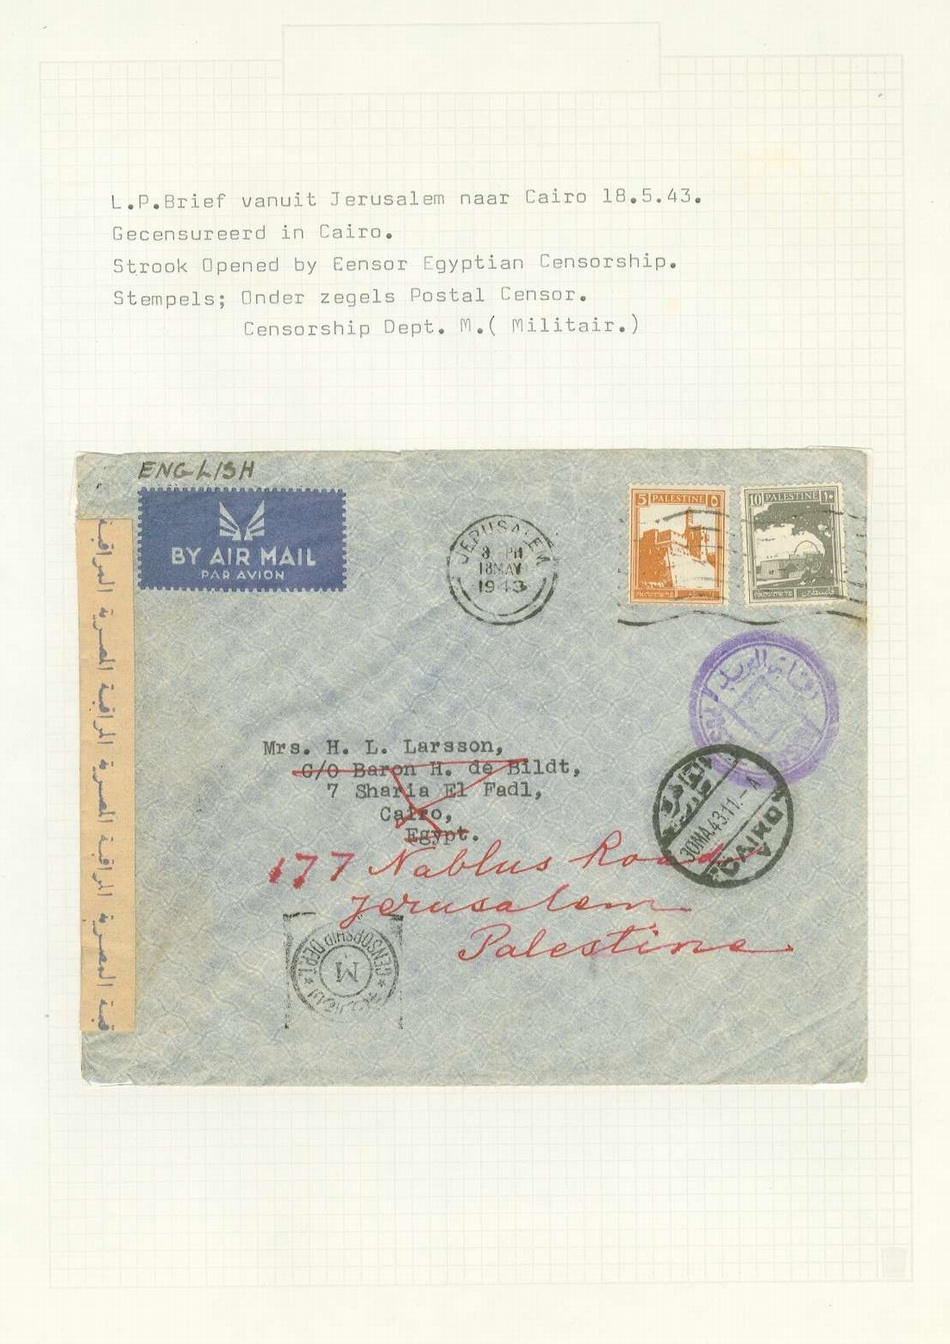 L.P.Brief vanuit Jerusalem naar Cairo 18.5.43.
Gecensureerd in Cairo.
Strook Opened by Eensor Egyptian Censorship.
Stempels; Onder zegels Postal Censor.
Censorship Dept. M.( Militair.)
ENGLISH
BY AIR MAIL
PAR AVION
JERUSALEM
8 PM
18 MAY
1943
5 PALESTINE ٥
10 PALESTINE ١٠
المراقبة المصرية المراقبة المصرية المراقبة المصرية المراقبة
Mrs. H. L. Larsson,
C/O Baron H. de Bildt,
7 Sharia El Fadl,
Cairo,
Egypt.
177 Nablus Road
Jerusalem
Palestine
القاهرة
30 MA.43.11.- A
CAIRO
CENSORSHIP DEPT.
M